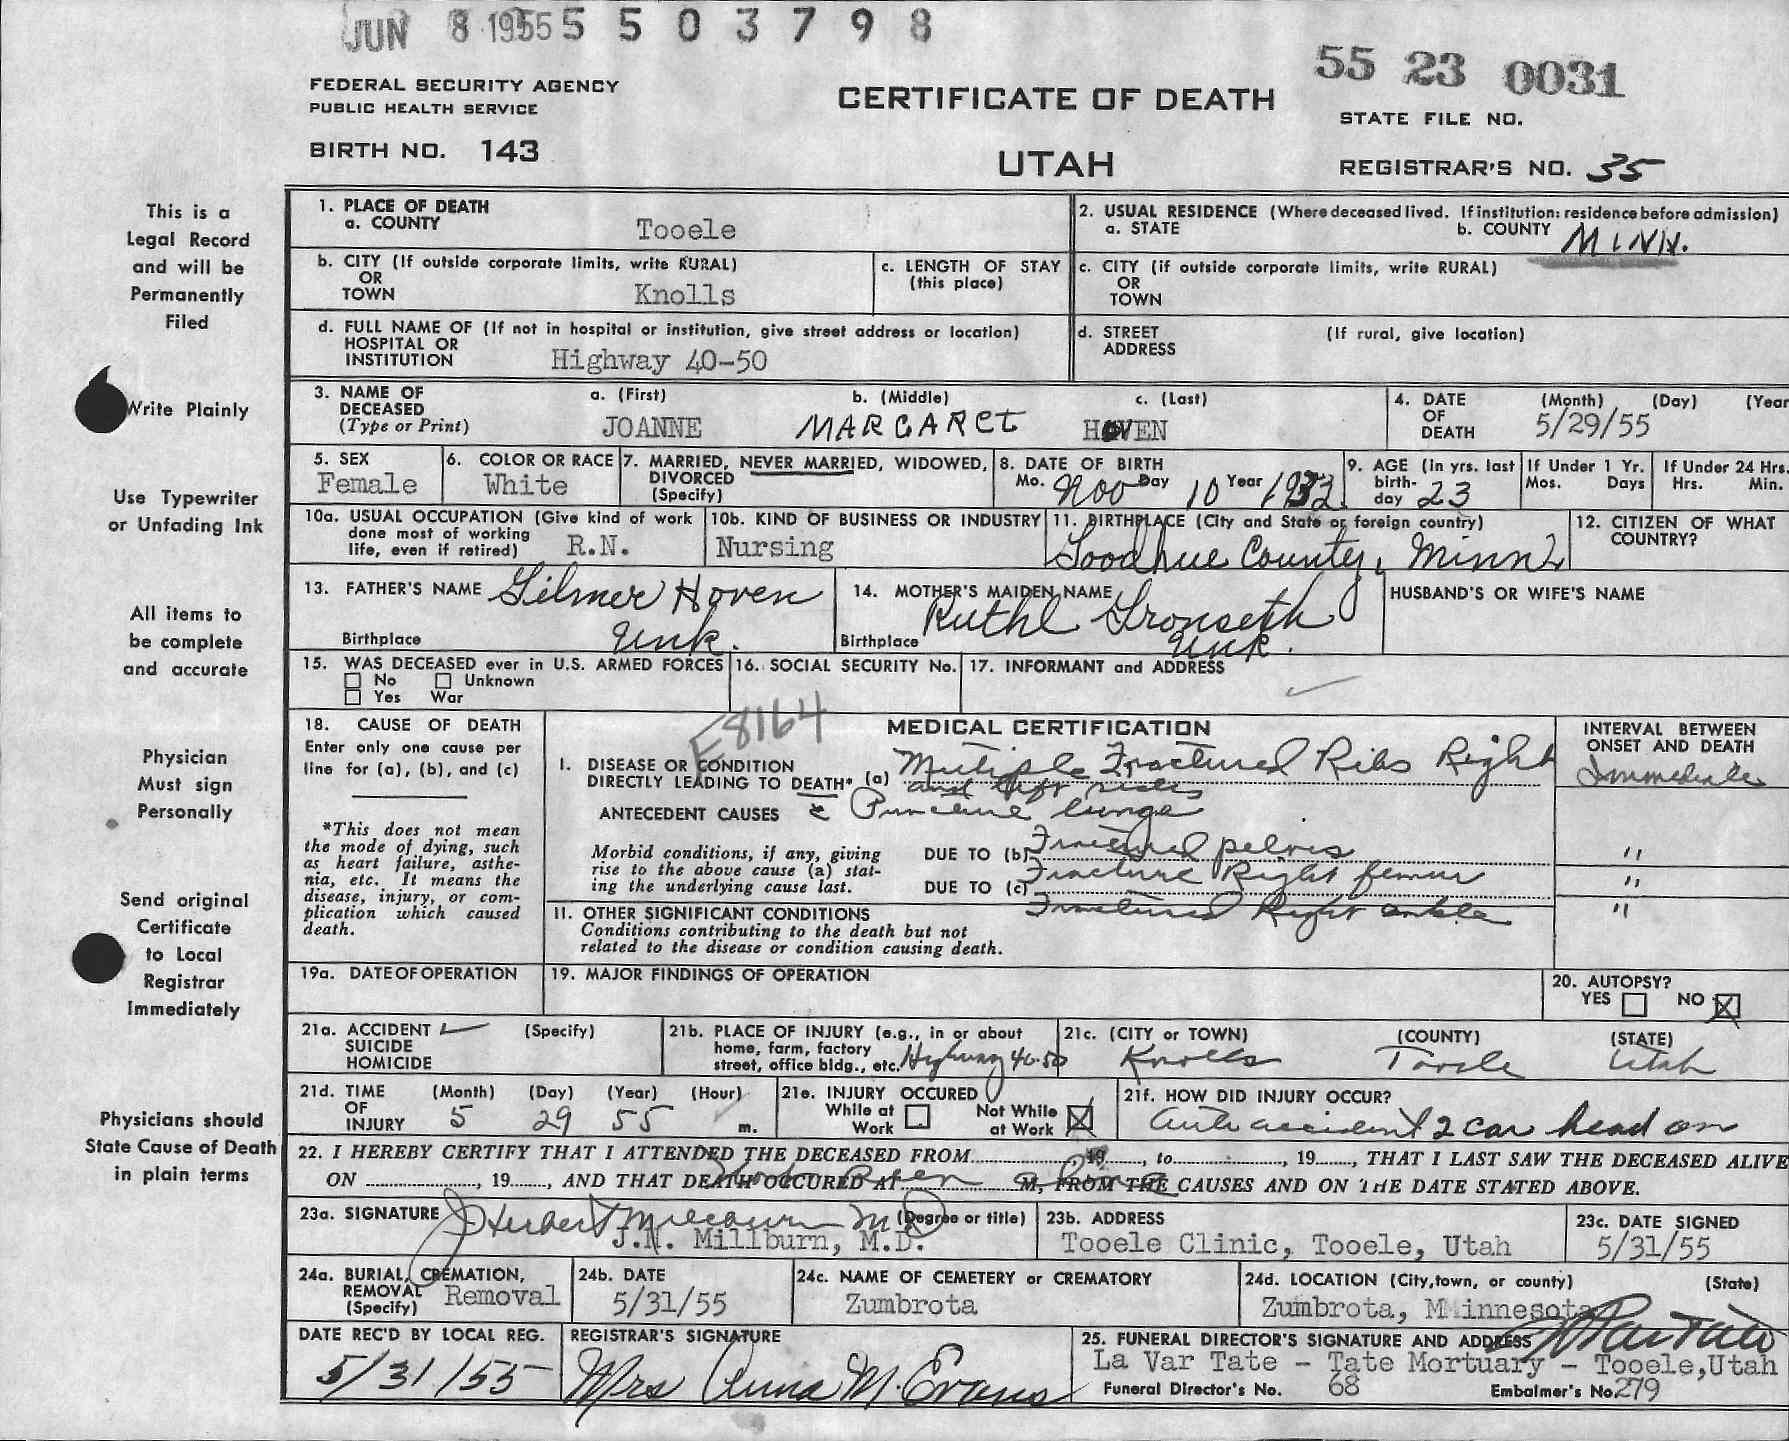 JUN 8 1955 5 5 0 3 7 9 8
55 23 0031
FEDERAL SECURITY AGENCY
PUBLIC HEALTH SERVICE
CERTIFICATE OF DEATH
STATE FILE NO.
BIRTH NO. 143
UTAH
REGISTRAR'S NO. 35
This is a
Legal Record
and will be
Permanently
Filed
Write Plainly
Use Typewriter
or Unfading Ink
All items to
be complete
and accurate
Physician
Must sign
Personally
Send original
Certificate
to Local
Registrar
Immediately
Physicians should
State Cause of Death
in plain terms
1. PLACE OF DEATH
a. COUNTY Tooele
2. USUAL RESIDENCE (Where deceased lived. If institution: residence before admission)
a. STATE b. COUNTY MINN.
b. CITY (If outside corporate limits, write RURAL)
OR
TOWN Knolls
c. LENGTH OF STAY
(this place)
c. CITY (if outside corporate limits, write RURAL)
OR
TOWN
d. FULL NAME OF (If not in hospital or institution, give street address or location)
HOSPITAL OR
INSTITUTION Highway 40-50
d. STREET (If rural, give location)
ADDRESS
3. NAME OF a. (First) b. (Middle) c. (Last)
DECEASED
(Type or Print) JOANNE MARGARET HOVEN
4. DATE (Month) (Day) (Year
OF
DEATH 5/29/55
5. SEX
Female
6. COLOR OR RACE
White
7. MARRIED, NEVER MARRIED, WIDOWED,
DIVORCED
(Specify)
8. DATE OF BIRTH
Mo. Nov Day 10 Year 1932
9. AGE (In yrs. last
birth-
day 23
If Under 1 Yr.
Mos. Days
If Under 24 Hrs.
Hrs. Min.
10a. USUAL OCCUPATION (Give kind of work
done most of working
life, even if retired) R.N.
10b. KIND OF BUSINESS OR INDUSTRY
Nursing
11. BIRTHPLACE (City and State or foreign country)
Goodhue County, Minn
12. CITIZEN OF WHAT
COUNTRY?
13. FATHER'S NAME Gilmer Hoven
Birthplace Unk.
14. MOTHER'S MAIDEN NAME
Ruthl Gronseth
Birthplace Unk.
HUSBAND'S OR WIFE'S NAME
15. WAS DECEASED ever in U.S. ARMED FORCES
No Unknown
Yes War
16. SOCIAL SECURITY No.
17. INFORMANT and ADDRESS
18. CAUSE OF DEATH
Enter only one cause per
line for (a), (b), and (c)
*This does not mean
the mode of dying, such
as heart failure, asthe-
nia, etc. It means the
disease, injury, or com-
plication which caused
death.
E8164
MEDICAL CERTIFICATION
I. DISEASE OR CONDITION
DIRECTLY LEADING TO DEATH* (a) Multiple Fractured Ribs Right
and left sides
ANTECEDENT CAUSES & Puncture lungs
Morbid conditions, if any, giving
rise to the above cause (a) stat-
ing the underlying cause last.
DUE TO (b) Fractured pelvis
DUE TO (c) Fracture Right femur
II. OTHER SIGNIFICANT CONDITIONS Fractured Right ankle
Conditions contributing to the death but not
related to the disease or condition causing death.
INTERVAL BETWEEN
ONSET AND DEATH
Immediate
"
"
"
19a. DATE OF OPERATION
19. MAJOR FINDINGS OF OPERATION
20. AUTOPSY?
YES NO X
21a. ACCIDENT (Specify)
SUICIDE
HOMICIDE
21b. PLACE OF INJURY (e.g., in or about
home, farm, factory
street, office bldg., etc. Highway 40-50
21c. (CITY or TOWN) (COUNTY) (STATE)
Knolls Tooele Utah
21d. TIME (Month) (Day) (Year) (Hour)
OF
INJURY 5 29 55 m.
21e. INJURY OCCURED
While at Work Not While at Work X
21f. HOW DID INJURY OCCUR?
Auto accident 2 car head on
22. I HEREBY CERTIFY THAT I ATTENDED THE DECEASED FROM, 19, to, 19, THAT I LAST SAW THE DECEASED ALIVE
ON, 19, AND THAT DEATH OCCURED AT M, FROM THE CAUSES AND ON THE DATE STATED ABOVE.
23a. SIGNATURE J Herbert Millburn MD (Degree or title)
J.H. Millburn, M.D.
23b. ADDRESS
Tooele Clinic, Tooele, Utah
23c. DATE SIGNED
5/31/55
24a. BURIAL, CREMATION,
REMOVAL
(Specify) Removal
24b. DATE
5/31/55
24c. NAME OF CEMETERY or CREMATORY
Zumbrota
24d. LOCATION (City, town, or county) (State)
Zumbrota, Minnesota
DATE REC'D BY LOCAL REG.
5/31/55
REGISTRAR'S SIGNATURE
Mrs Anna M. Evans
25. FUNERAL DIRECTOR'S SIGNATURE AND ADDRESS
La Var Tate - Tate Mortuary - Tooele, Utah
Funeral Director's No. 68 Embalmer's No. 279